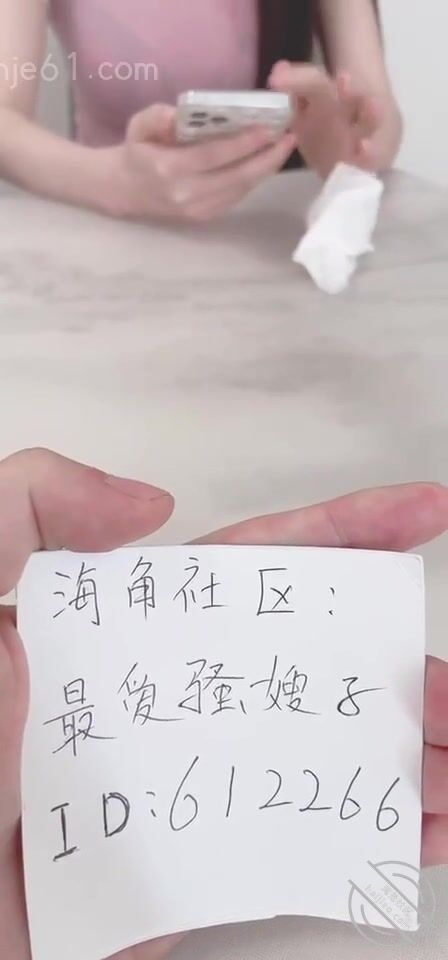 nje61.com
海角社区:
最爱骚嫂子
ID:612266